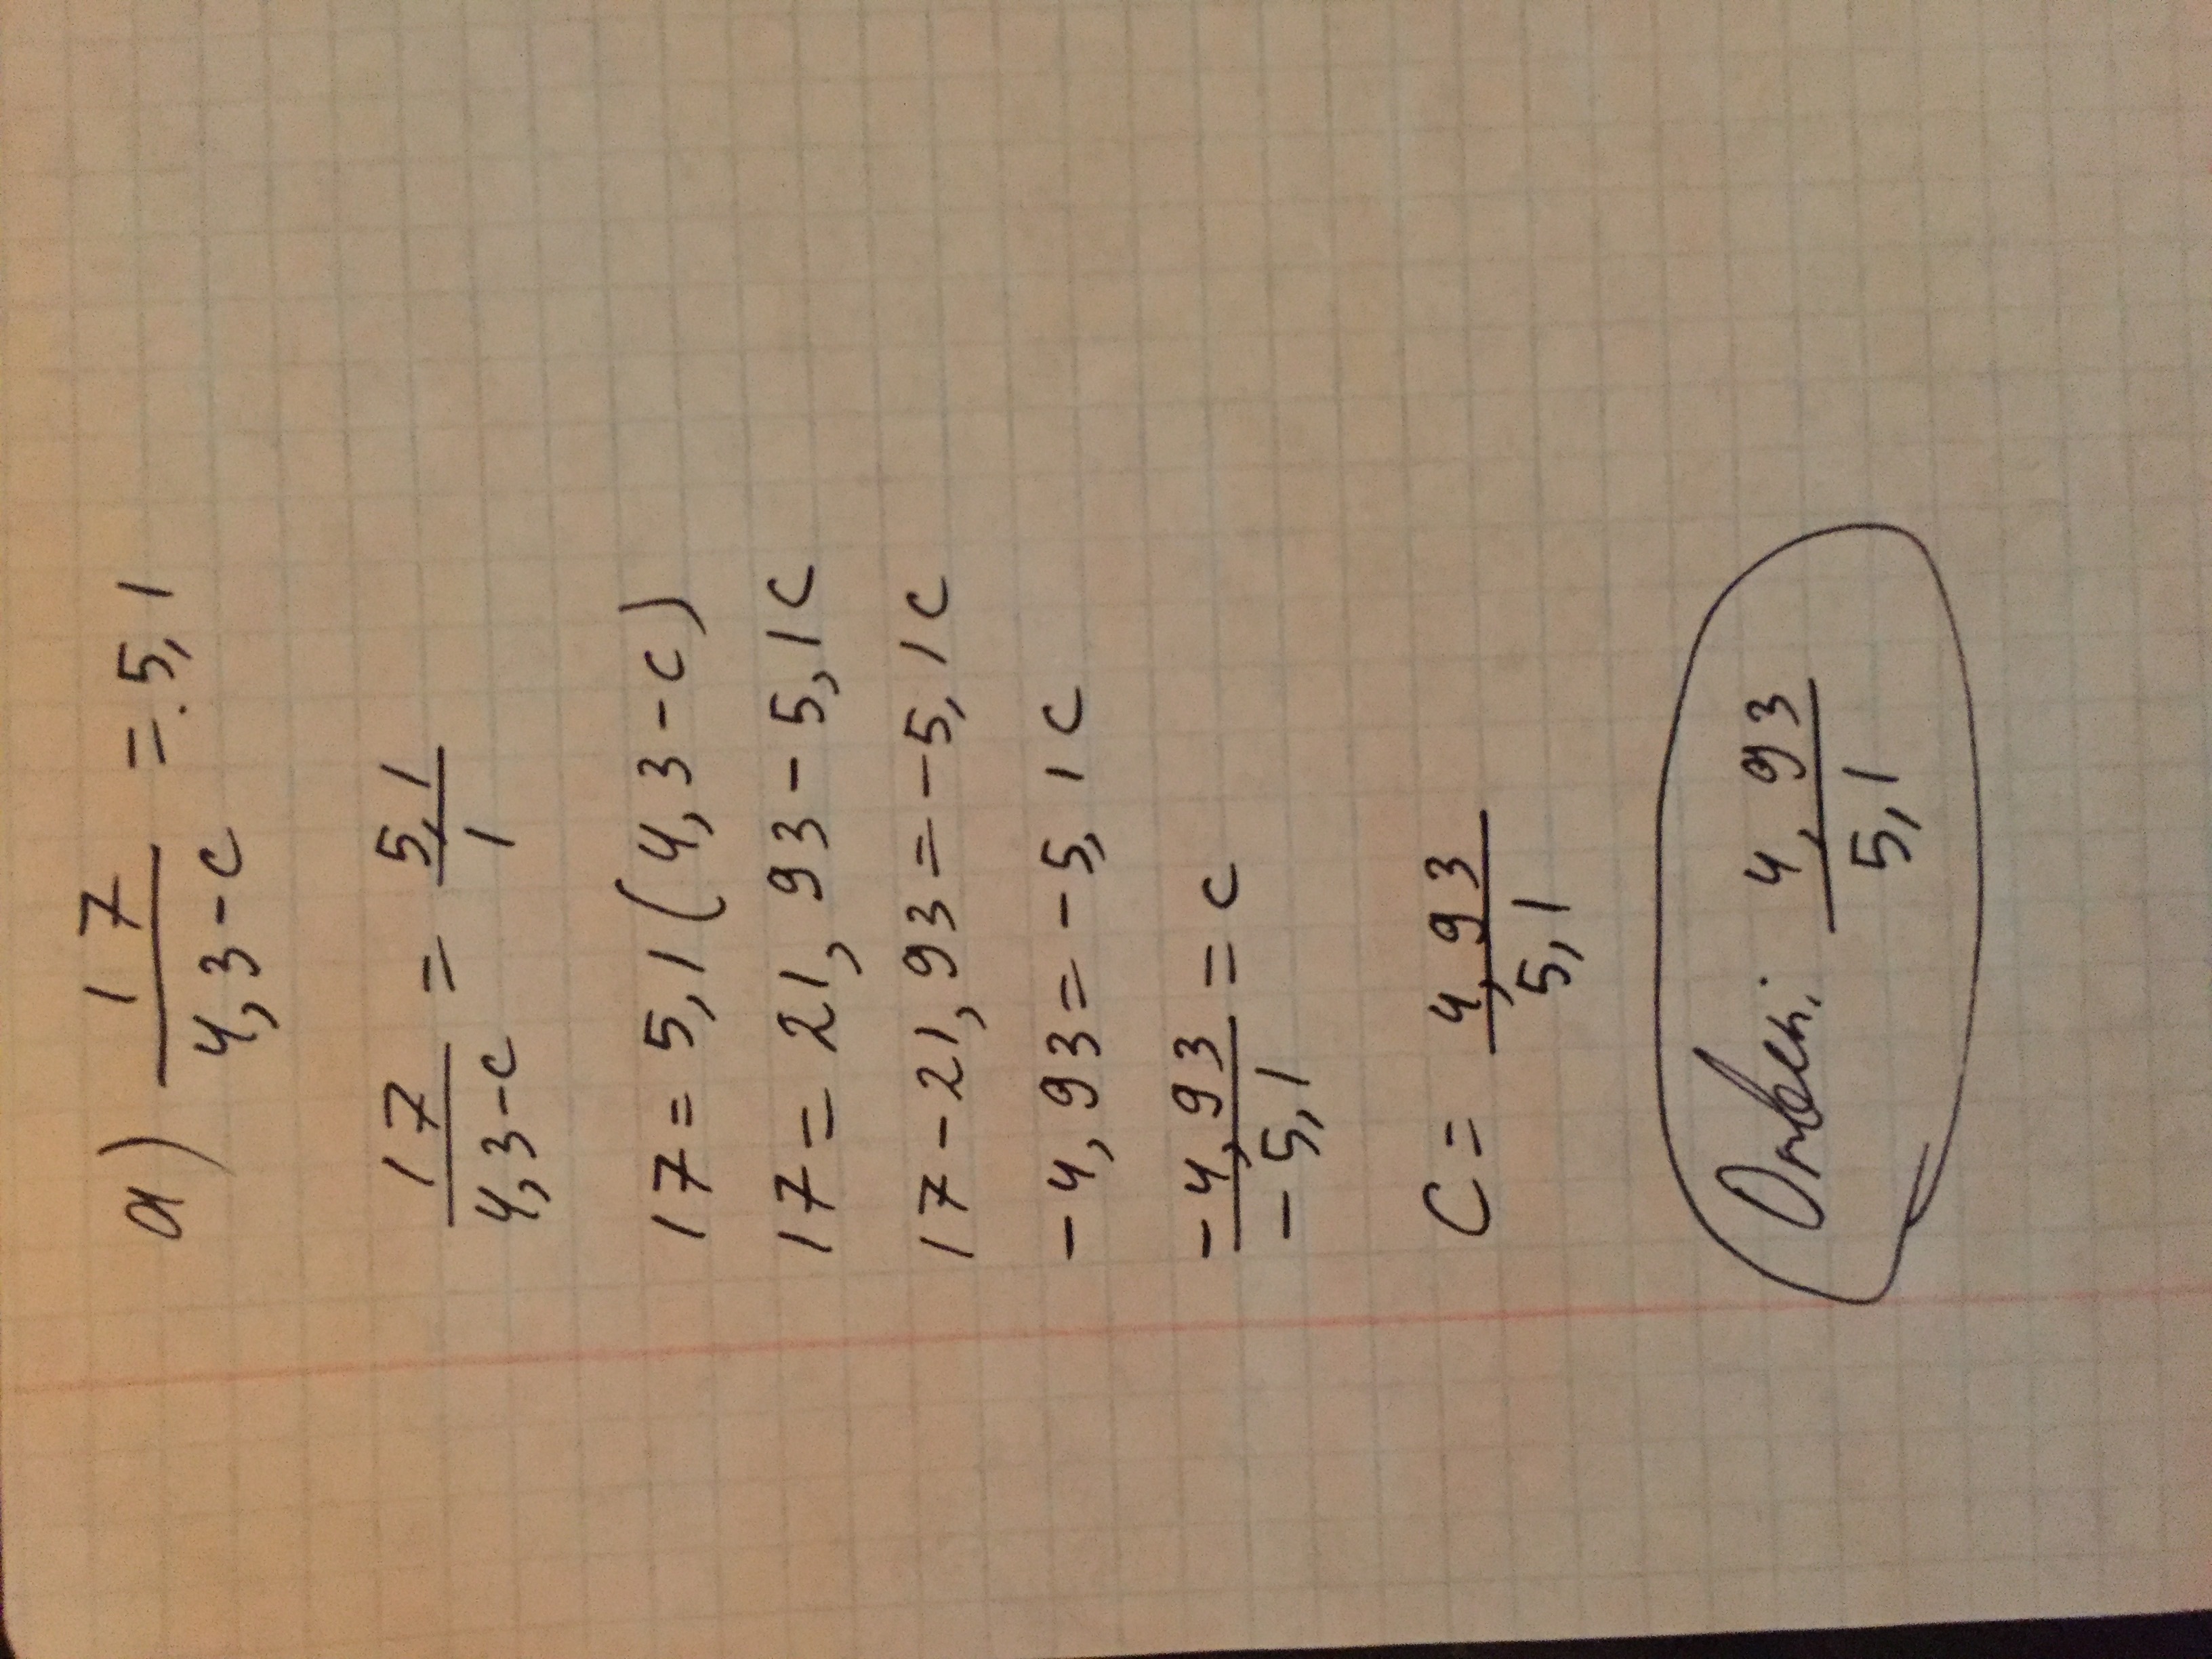 а) 17/4,3-c = 5,1
17/4,3-c = 5,1/1
17=5,1(4,3-c)
17=21,93-5,1c
17-21,93=-5,1c
-4,93=-5,1c
-4,93/-5,1=c
C=4,93/5,1
Ответ: 4,93/5,1